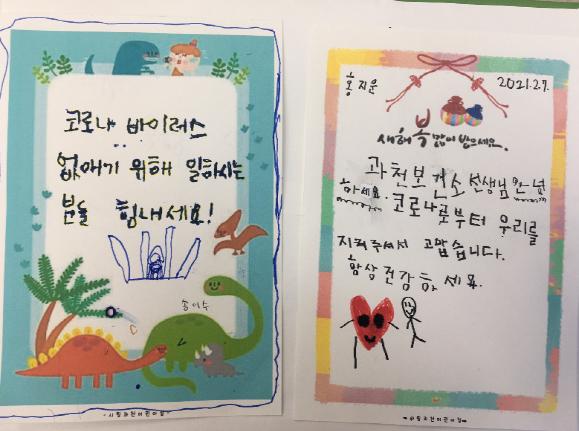 코로나 바이러스
없애기 위해 일하시는
분들 힘내세요!
송이수
시립과천어린이집
홍지운
2021.2.7.
새해 복 많이 받으세요.
과천보건소 선생님 안녕
하세요. 코로나로부터 우리를
지켜주셔서 고맙습니다.
항상 건강하세요.
시립과천어린이집